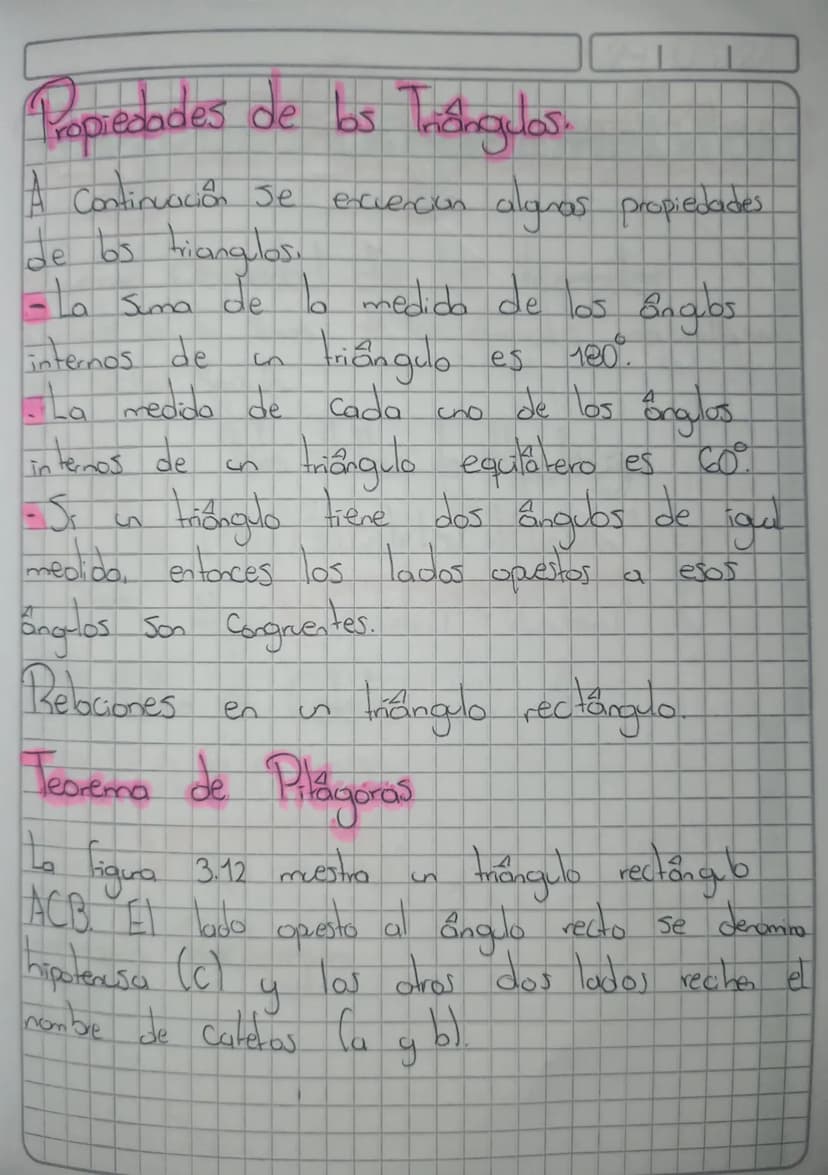 Propiedades de los Triângulos.
A Continuación se enuencian algunas propiedades
de los trianglos.
- La suma de la medida de los ângulos
internos de un triângulo es 180°.
- La medida de cada uno de los ânglos
internos de un triângulo equilâtero es 60°.
- Si un triângulo tiene dos ângulos de igual
medida, entonces los lados opuestos a esos
ângulos son Congruentes.
Relaciones en un triângulo rectângulo.
Teorema de Pitâgoras
La figura 3.12 muestra un triângulo rectângulo
ACB. El lado opuesto al ângulo recto se denomina
hipotenusa (c) y los otros dos lados reciben el
nombre de catetos (a y b).